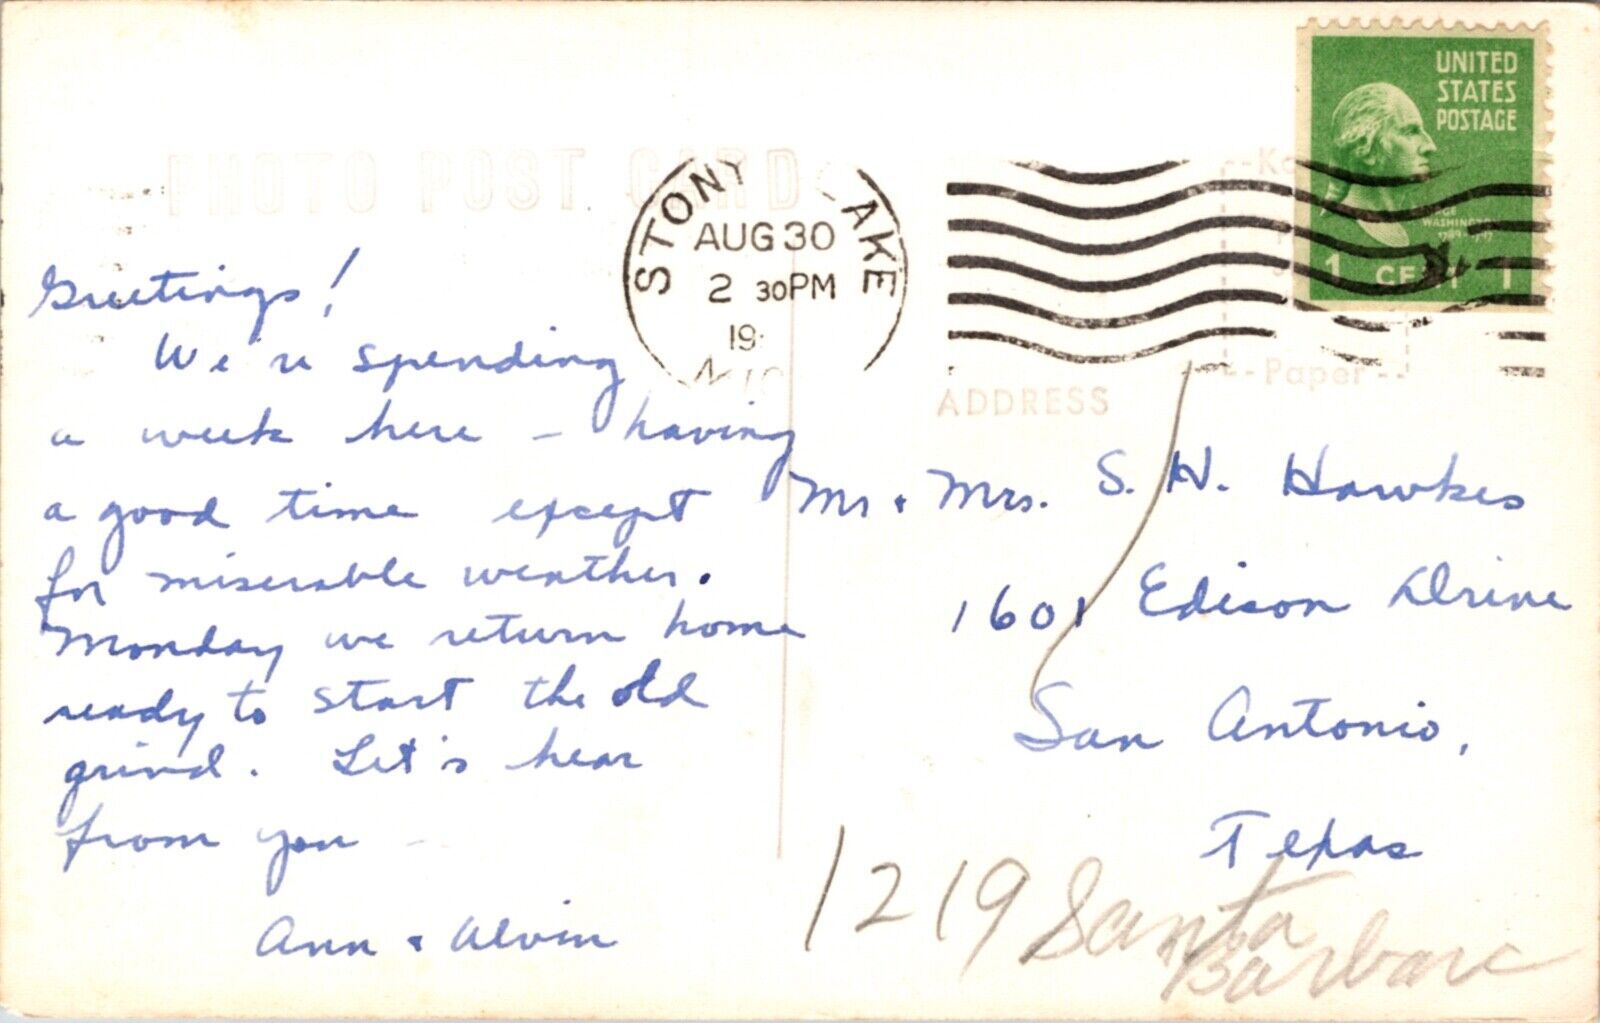 UNITED
STATES
POSTAGE
WASHINGTON
1
1
PHOTO POST CARD
STONY AKE
AUG 30
2 30PM
19
Paper
ADDRESS
Greetings!
We're spending
a week here - having
a good time except
for miserable weather.
Monday we return home
ready to start the old
grind. Let's hear
from you -
Ann & Alvin
Mr & Mrs. S. H. Hawkes
1601 Edison Drive
San Antonio,
Texas
1219 Santa
Barbara